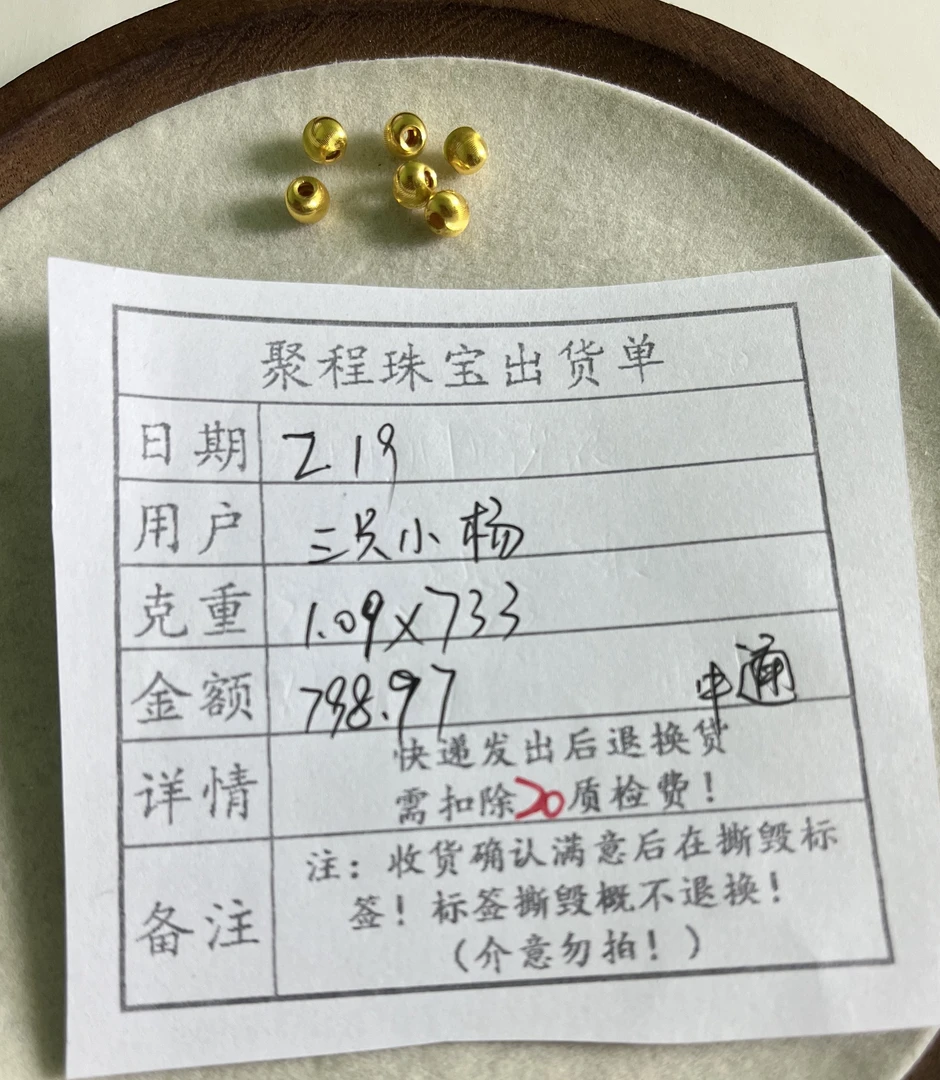 聚程珠宝出货单
日期 2.19
用户 三只小杨
克重 1.09×733
金额 798.97 中通
详情 快递发出后退换货
需扣除20质检费！
备注 注：收货确认满意后在撕毁标
签！标签撕毁概不退换！
（介意勿拍！）